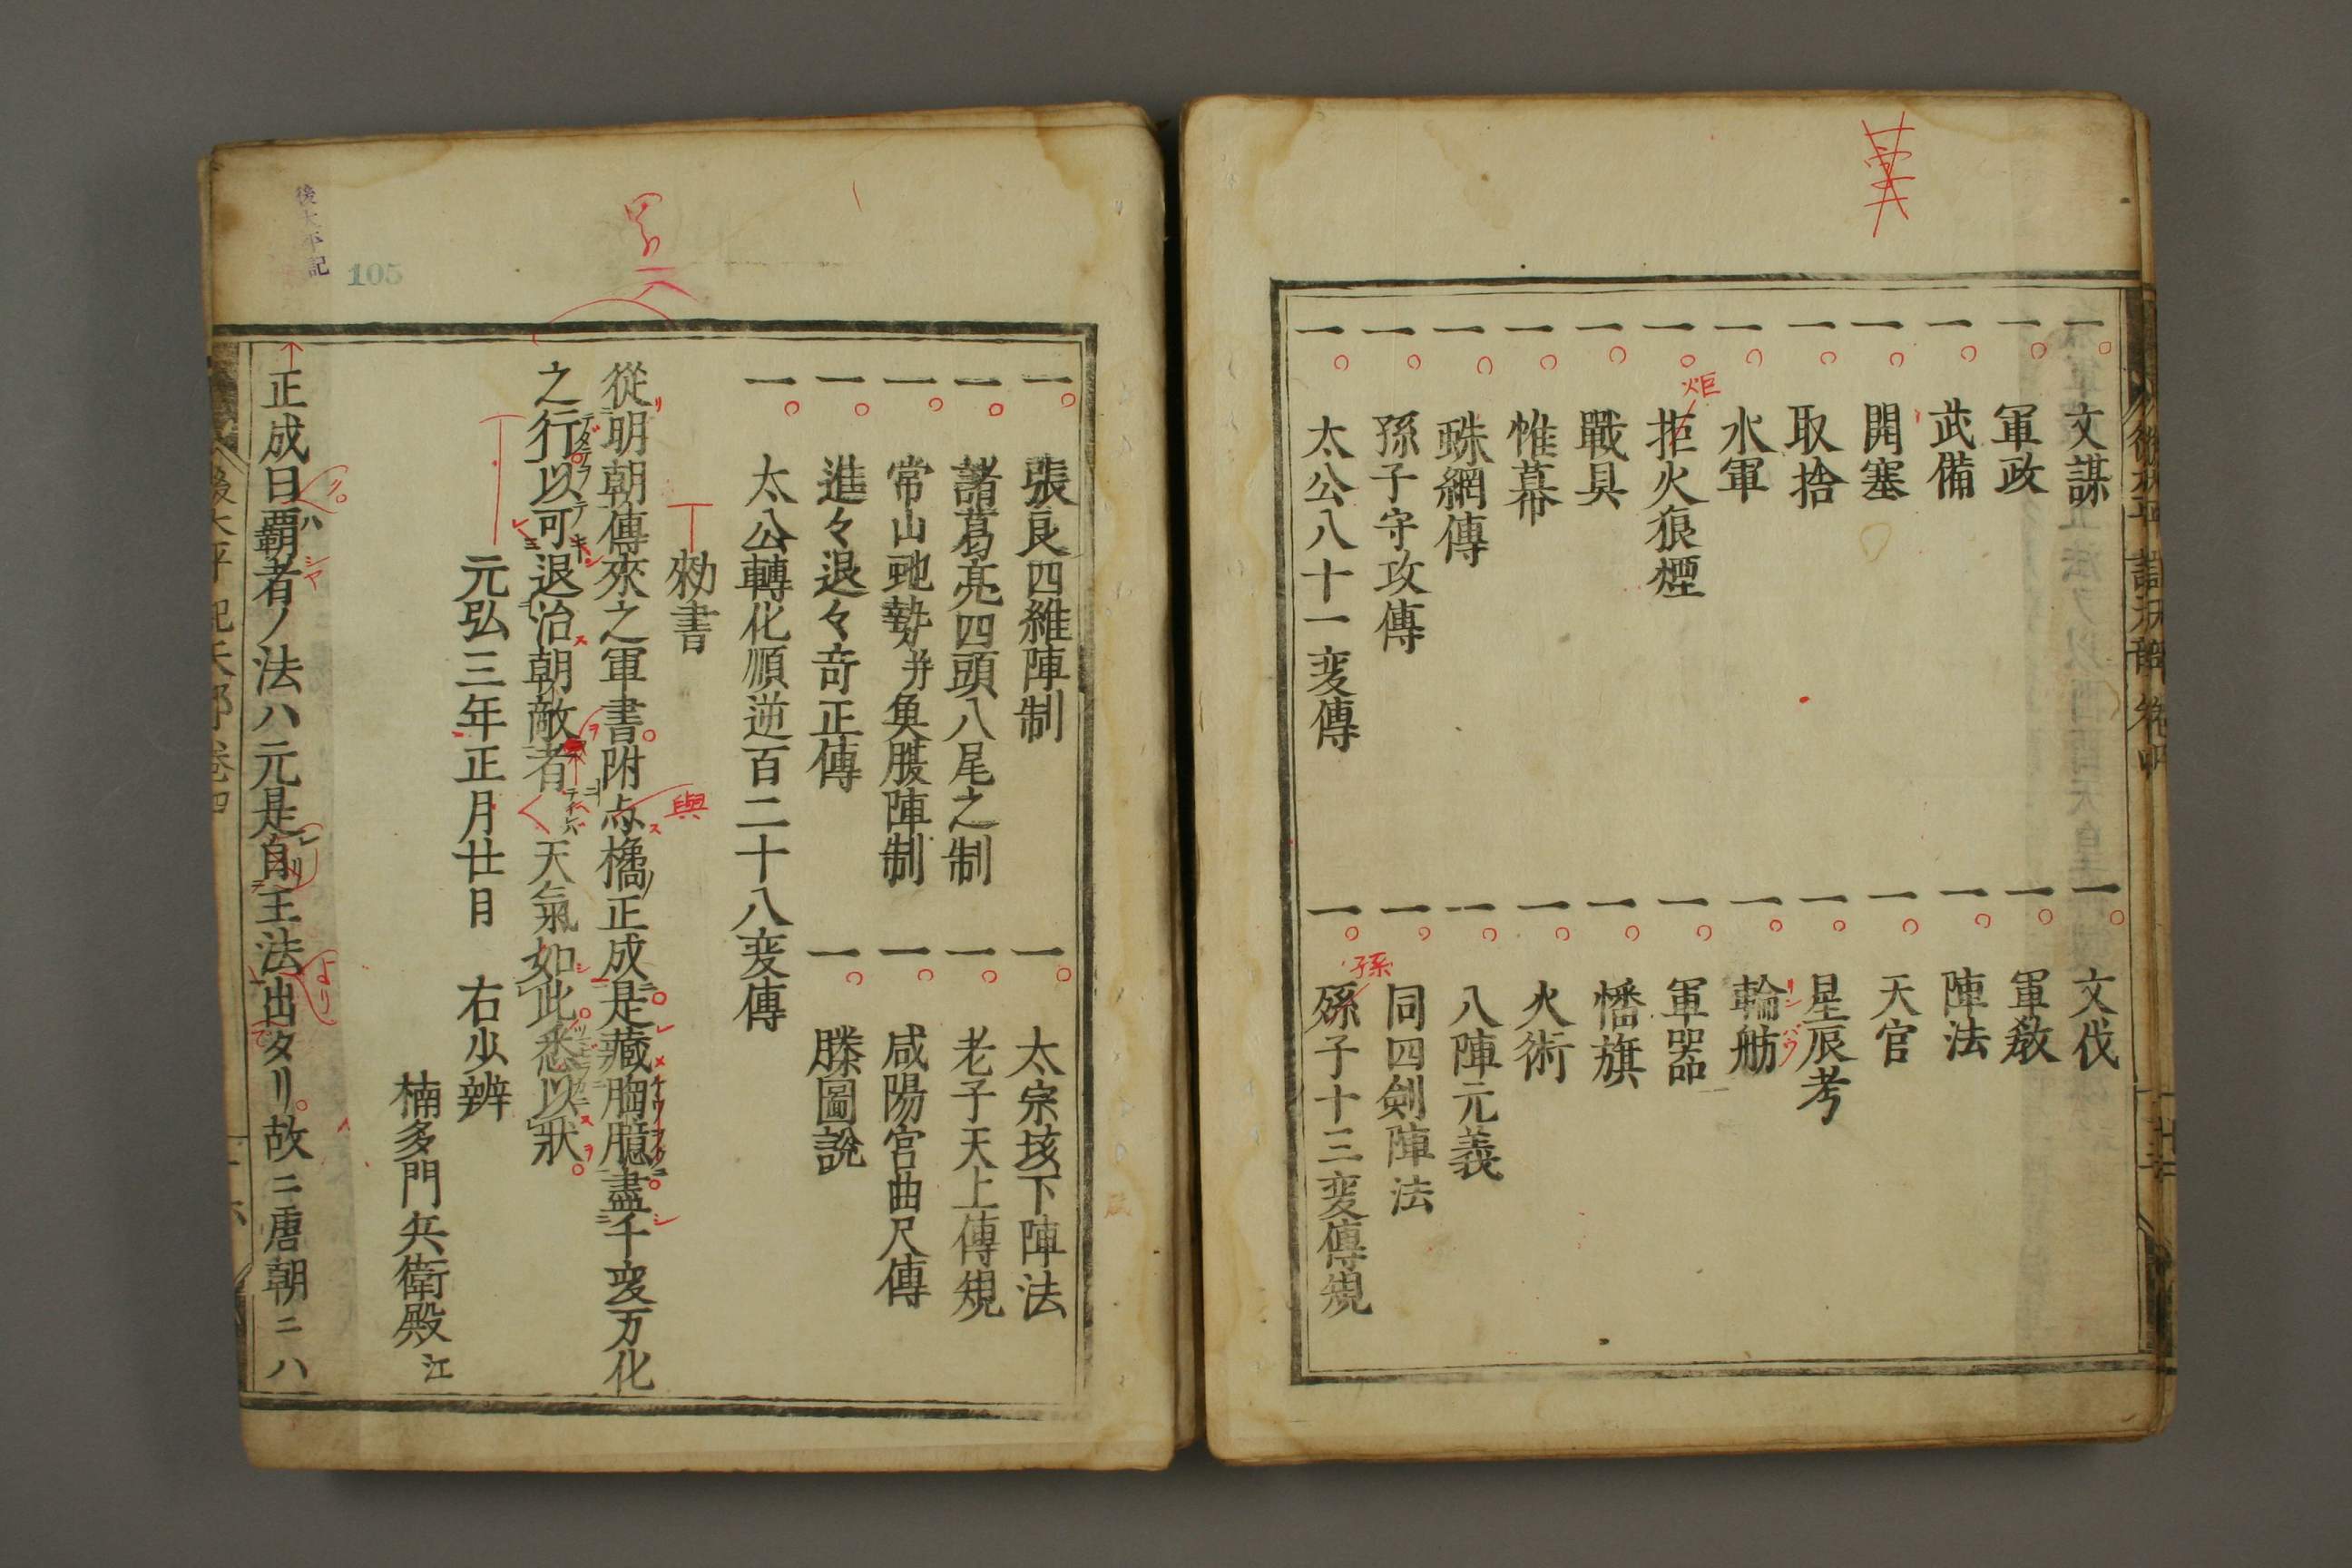 一 文謀 一 文伐
一 軍政 一 軍敎
一 武備 一 陣法
一 開塞 一 天官
一 取捨 一 星辰考
一 水軍 一 輪舫
一 拒火狼煙 一 軍器
一 戰具 一 幡旗
一 帷幕 一 火術
一 蛛網傳 一 八陣元義
一 孫子守攻傳 一 同四劍陣法
一 太公八十一変傳 一 孫子十三変傳規
炬
孫
リンバウ
一 張良四維陣制 一 太宗垓下陣法
一 諸葛亮四頭八尾之制 一 老子天上傳規
一 常山虵勢并魚腹陣制 一 咸陽宮曲尺傳
一 進々退々竒正傳 一 滕圖說
一 太公轉化順逆百二十八変傳
勑書
從明朝傳來之軍書附与橘正成是藏胸臆盡千変万化
之行以可退治朝敵者天氣如此悉以狀
元弘三年正月廿日 右少辨
楠多門兵衛殿江
正成曰覇者ノ法ハ元是自王法出タリ故ニ唐朝ニハ
與
より
後太平記
105